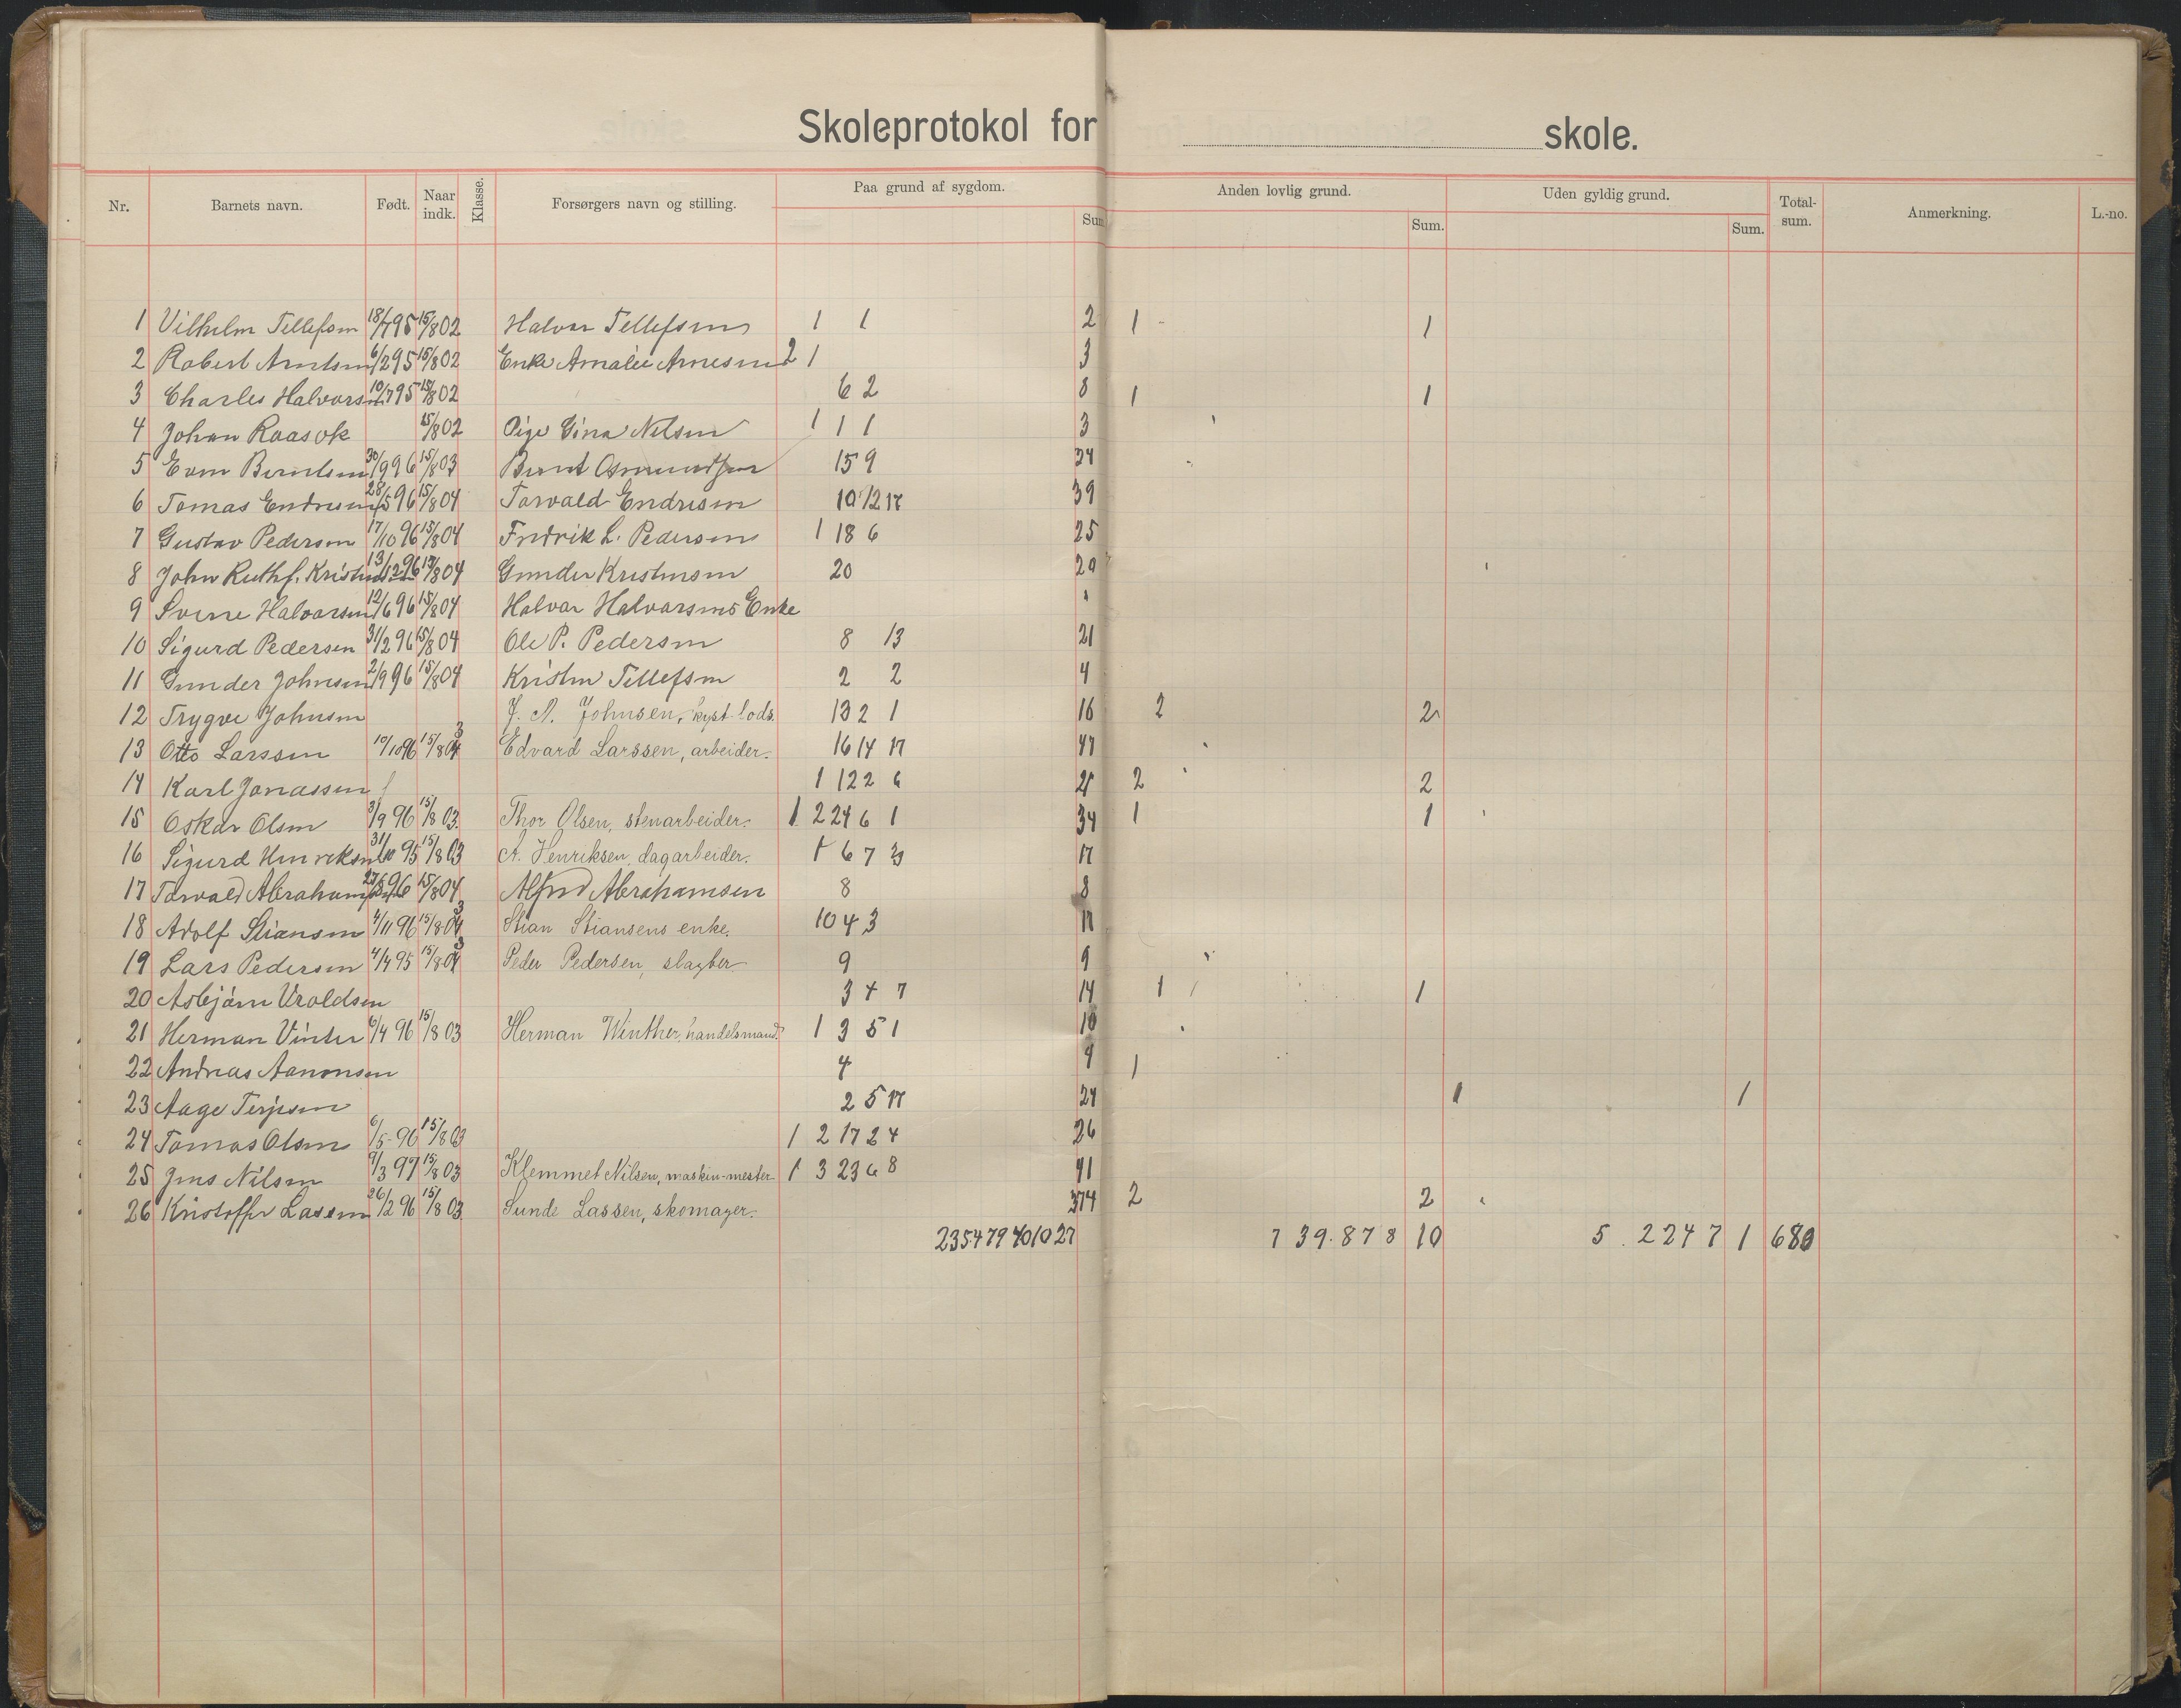 Skoleprotokol for skole.
Nr. Barnets navn. Født. Naar indk. Klasse. Forsørgers navn og stilling. Paa grund af sygdom. Sum Anden lovlig grund. Sum. Uden gyldig grund. Sum. Total-sum. Anmerkning. L.-no.
1 Vilhelm Tellefsen 18/7 95 15/8 02 Halvor Tellefsen 1 1 2 1 1
2 Robert Arntsen 6/2 95 15/8 02 Enke Amalie Arnesen 2 1 3
3 Charles Halvorsen 10/7 95 15/8 02 6 2 8 1 1
4 Johan Raasok 15/8 02 Pige Gina Nilsen 1 1 1 3
5 Even Berntsen 30/9 96 15/8 03 Bernt Osmundsen 15 9 24
6 Tomas Endresen 28/5 96 15/8 04 Torvald Endresen 10 12 17 39
7 Gustav Pedersen 17/10 96 15/8 04 Fredrik L. Pedersen 1 18 6 25
8 John Ruthf. Kristensen 13/12 96 15/8 04 Gunder Kristensen 20 20
9 Sverre Halvorsen 12/6 96 15/8 04 Halvor Halvorsens Enke
10 Sigurd Pedersen 31/2 96 15/8 04 Ole P. Pedersen 8 13 21
11 Gunder Johnsen 2/9 96 15/8 04 Kristen Tellefsen 2 2 4
12 Trygve Johnsen J. A. Johnsen, kyst-lods. 13 2 1 16 2 2
13 Otto Larssen 10/10 96 15/8 03 Edvard Larssen, arbeider. 16 14 17 47
14 Karl Jonassen 1 12 2 6 21 2 2
15 Oskar Olsen 3/9 96 15/8 03. Thor Olsen, stenarbeider. 1 2 24 6 1 34 1 1
16 Sigurd Henriksen 31/10 95 15/8 03 A. Henriksen, dagarbeider. 1 6 7 3 17
17 Torvald Abrahamsen 96 15/8 04 Alfred Abrahamsen 8 8
18 Adolf Stiansen 4/11 96 15/8 03 Stian Stiansens enke. 10 4 3 17
19 Lars Pedersen 4/4 95 15/8 03 Peder Pedersen, slagter 9 9
20 Asbjørn Uroldsen 3 4 7 14 1 1
21 Herman Vinter 6/4 96 15/8 03 Herman Winther, handelsmand. 1 3 5 1 10
22 Andreas Aanonsen 4 4 1
23 Aage Terjesen 2 5 17 24 1 1
24 Tomas Olsen 6/5 96 15/8 03 1 2 17 2 4 26
25 Jens Nilsen 9/3 97 15/8 03 Klemmet Nilsen, maskin-mester 1 3 23 6 8 41
26 Kristoffer Lassen 26/2 96 15/8 03 Sunde Lassen, skomager. 2 2
235 4 79 40 10 27 7 39. 8 7 8 10 5. 2 2 4 7 1 680